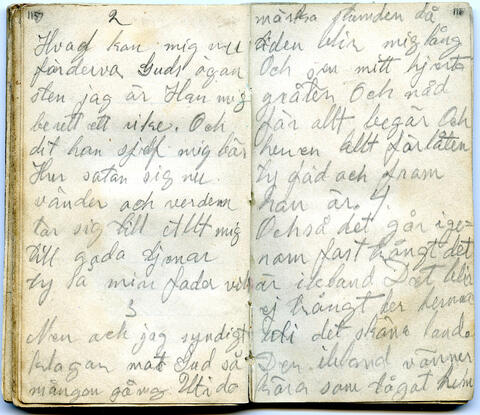 115
2
Hvad kan mig nu
förderva Guds ögan
sten jag är Han mig
berett ett rike. Och
dit han sjelf mig bär
Hur satan sig nu
vänder och verden
tar sig till Allt mig
till goda tjenar
ty så min fader vill
3
Men ack jag syndigt
klagan mot Gud så
mången gång Uti de
116
mörka stunden då
tiden blir mig lång
Och i mitt hjert
gråten Och nåd
får allt begär Och
herren allt förlåten
ty fäd och from
han är. 4.
Också det går ige-
nom fast trångt det
är ibland Det blir
ej trångt der hemma
Uti det sköna land
Der ibland vänner
kära som tågat hem